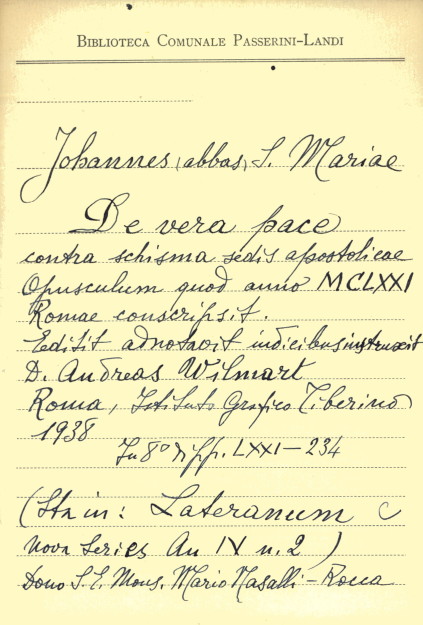 BIBLIOTECA COMUNALE PASSERINI-LANDI
Johannes (abbas) S. Mariae
De vera pace
contra schisma sedis apostolicae
Opusculum quod anno MCLXXI
Romae conscripsit.
Edidit adnotavit indicibus instruxit
D. Andreas Wilmart
Roma, Istituto Grafico Tiberino
1938
In 8° di pp. LXXI-234
(Sta in: Lateranum
Nova Series An IV n. 2)
Dono S. E. Mons. Mario Nasalli - Rocca